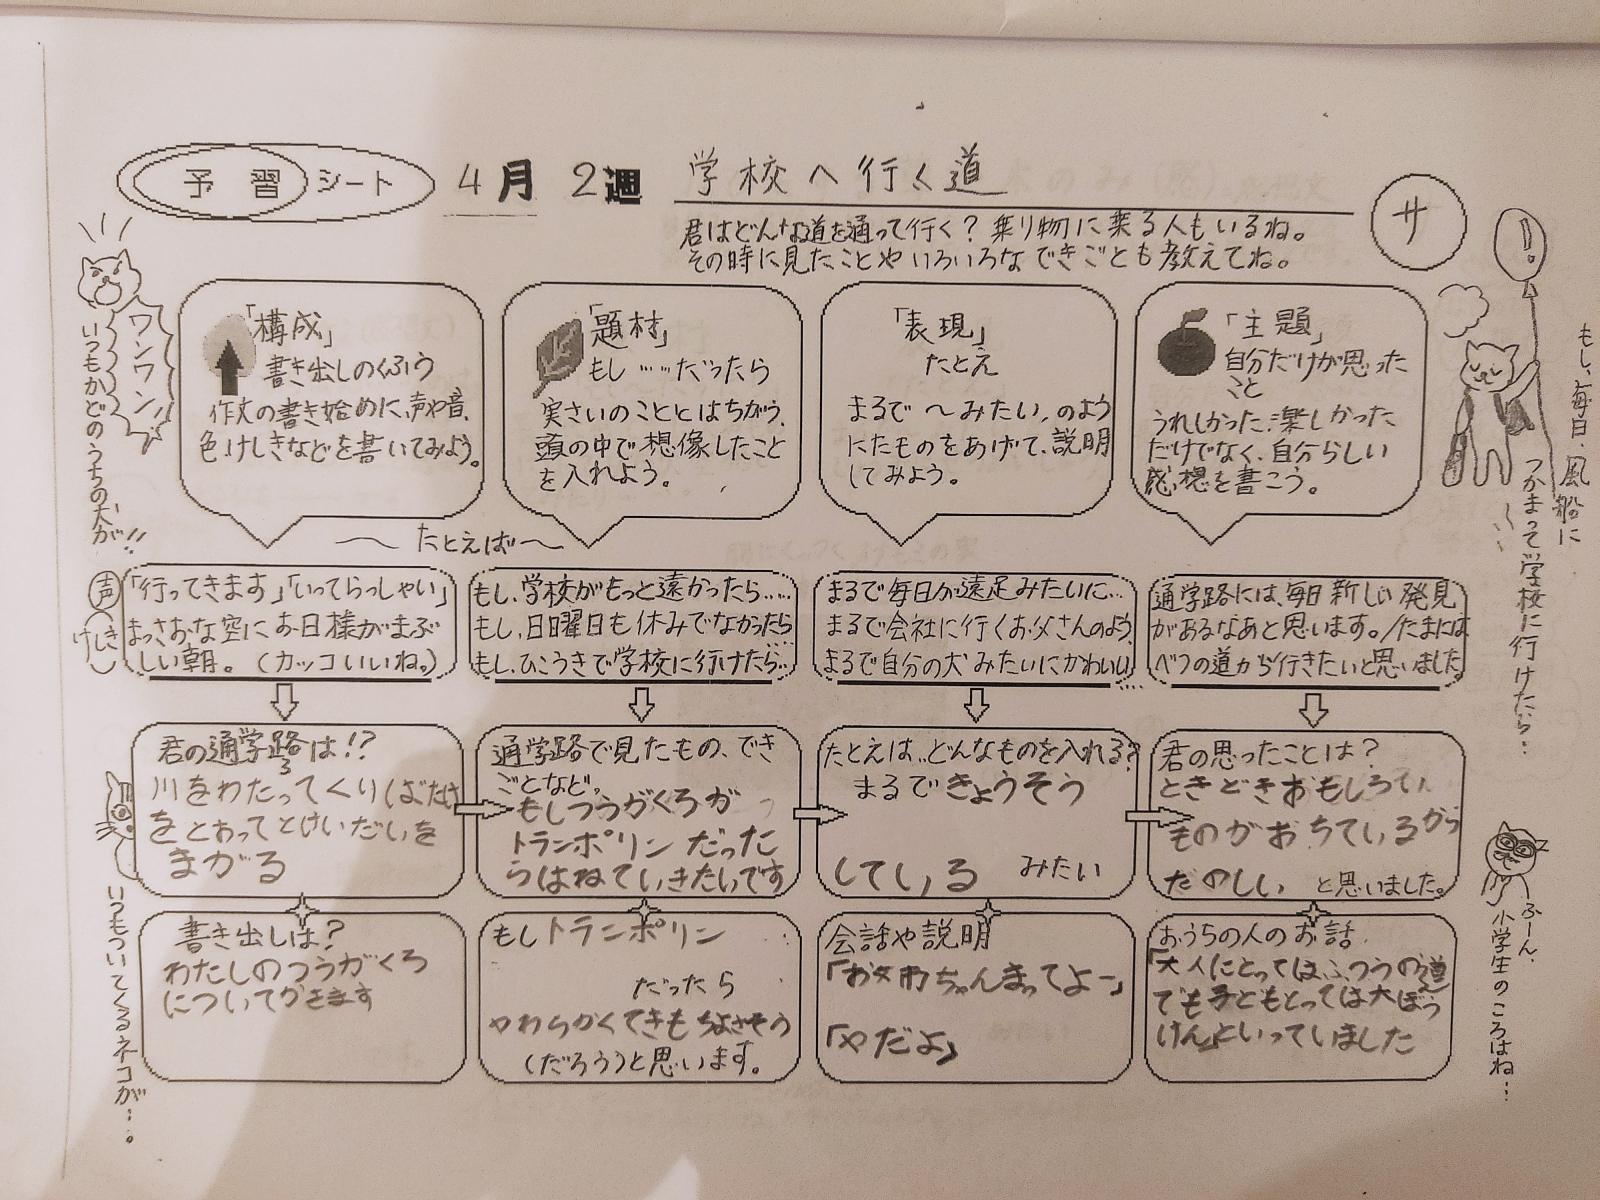 予習シート 4月 2週 学校へ行く道
サ
君はどんな道を通って行く？乗り物に乗る人もいるね。
その時に見たことやいろいろなできごとも教えてね。
ワンワン!
いつもかどのうちの犬が!!
「構成」
書き出しのくふう
作文の書き始めに、声や音、
色、けしきなどを書いてみよう。
「題材」
もし……だったら
実さいのこととはちがう、
頭の中で想像したこと
を入れよう。
「表現」
たとえ
まるで〜みたい、のよう
にたものをあげて、説明
してみよう。
「主題」
自分だけが思った
こと
うれしかった、楽しかった
だけでなく、自分らしい
感想を書こう。
!。
もし、毎日、風船に
つかまって学校に行けたら…
〜たとえば〜
声
けしき
「行ってきます」「いってらっしゃい」
まっさおな空にお日様がまぶ
しい朝。（カッコいいね。）
もし、学校がもっと遠かったら……
もし、日曜日も休みでなかったら…
もし、ひこうきで学校に行けたら…
まるで毎日が遠足みたいに…
まるで会社に行くお父さんのよう、
まるで自分の犬みたいにかわいい…
通学路には、毎日新しい発見
があるなあと思います。/たまには
べつの道から行きたいと思いました。
君の通学路は!?
ろ
川をわたってくりばたけ
をとおってとけいだいを
まがる
通学路で見たもの、でき
ごとなど。
もしつうがくろが
トランポリンだった
らはねていきたいです
たとえは、どんなものを入れる?
まるできょうそう
している みたい
君の思ったことは？
ときどきおもしろい
ものがおちているから
たのしい と思いました。
書き出しは？
わたしのつうがくろ
についてかきます
もしトランポリン
だったら
やわらかくてきもちよさそう
（だろう）と思います。
会話や説明
「お
ちゃんまってよー」
「やだよ」
おうちの人のお話
「大人にとってはふつうの道
でも子どもとっては大ぼう
けん」といっていました
いつもついてくるネコが…。
ふーん、
小学生のころはね…